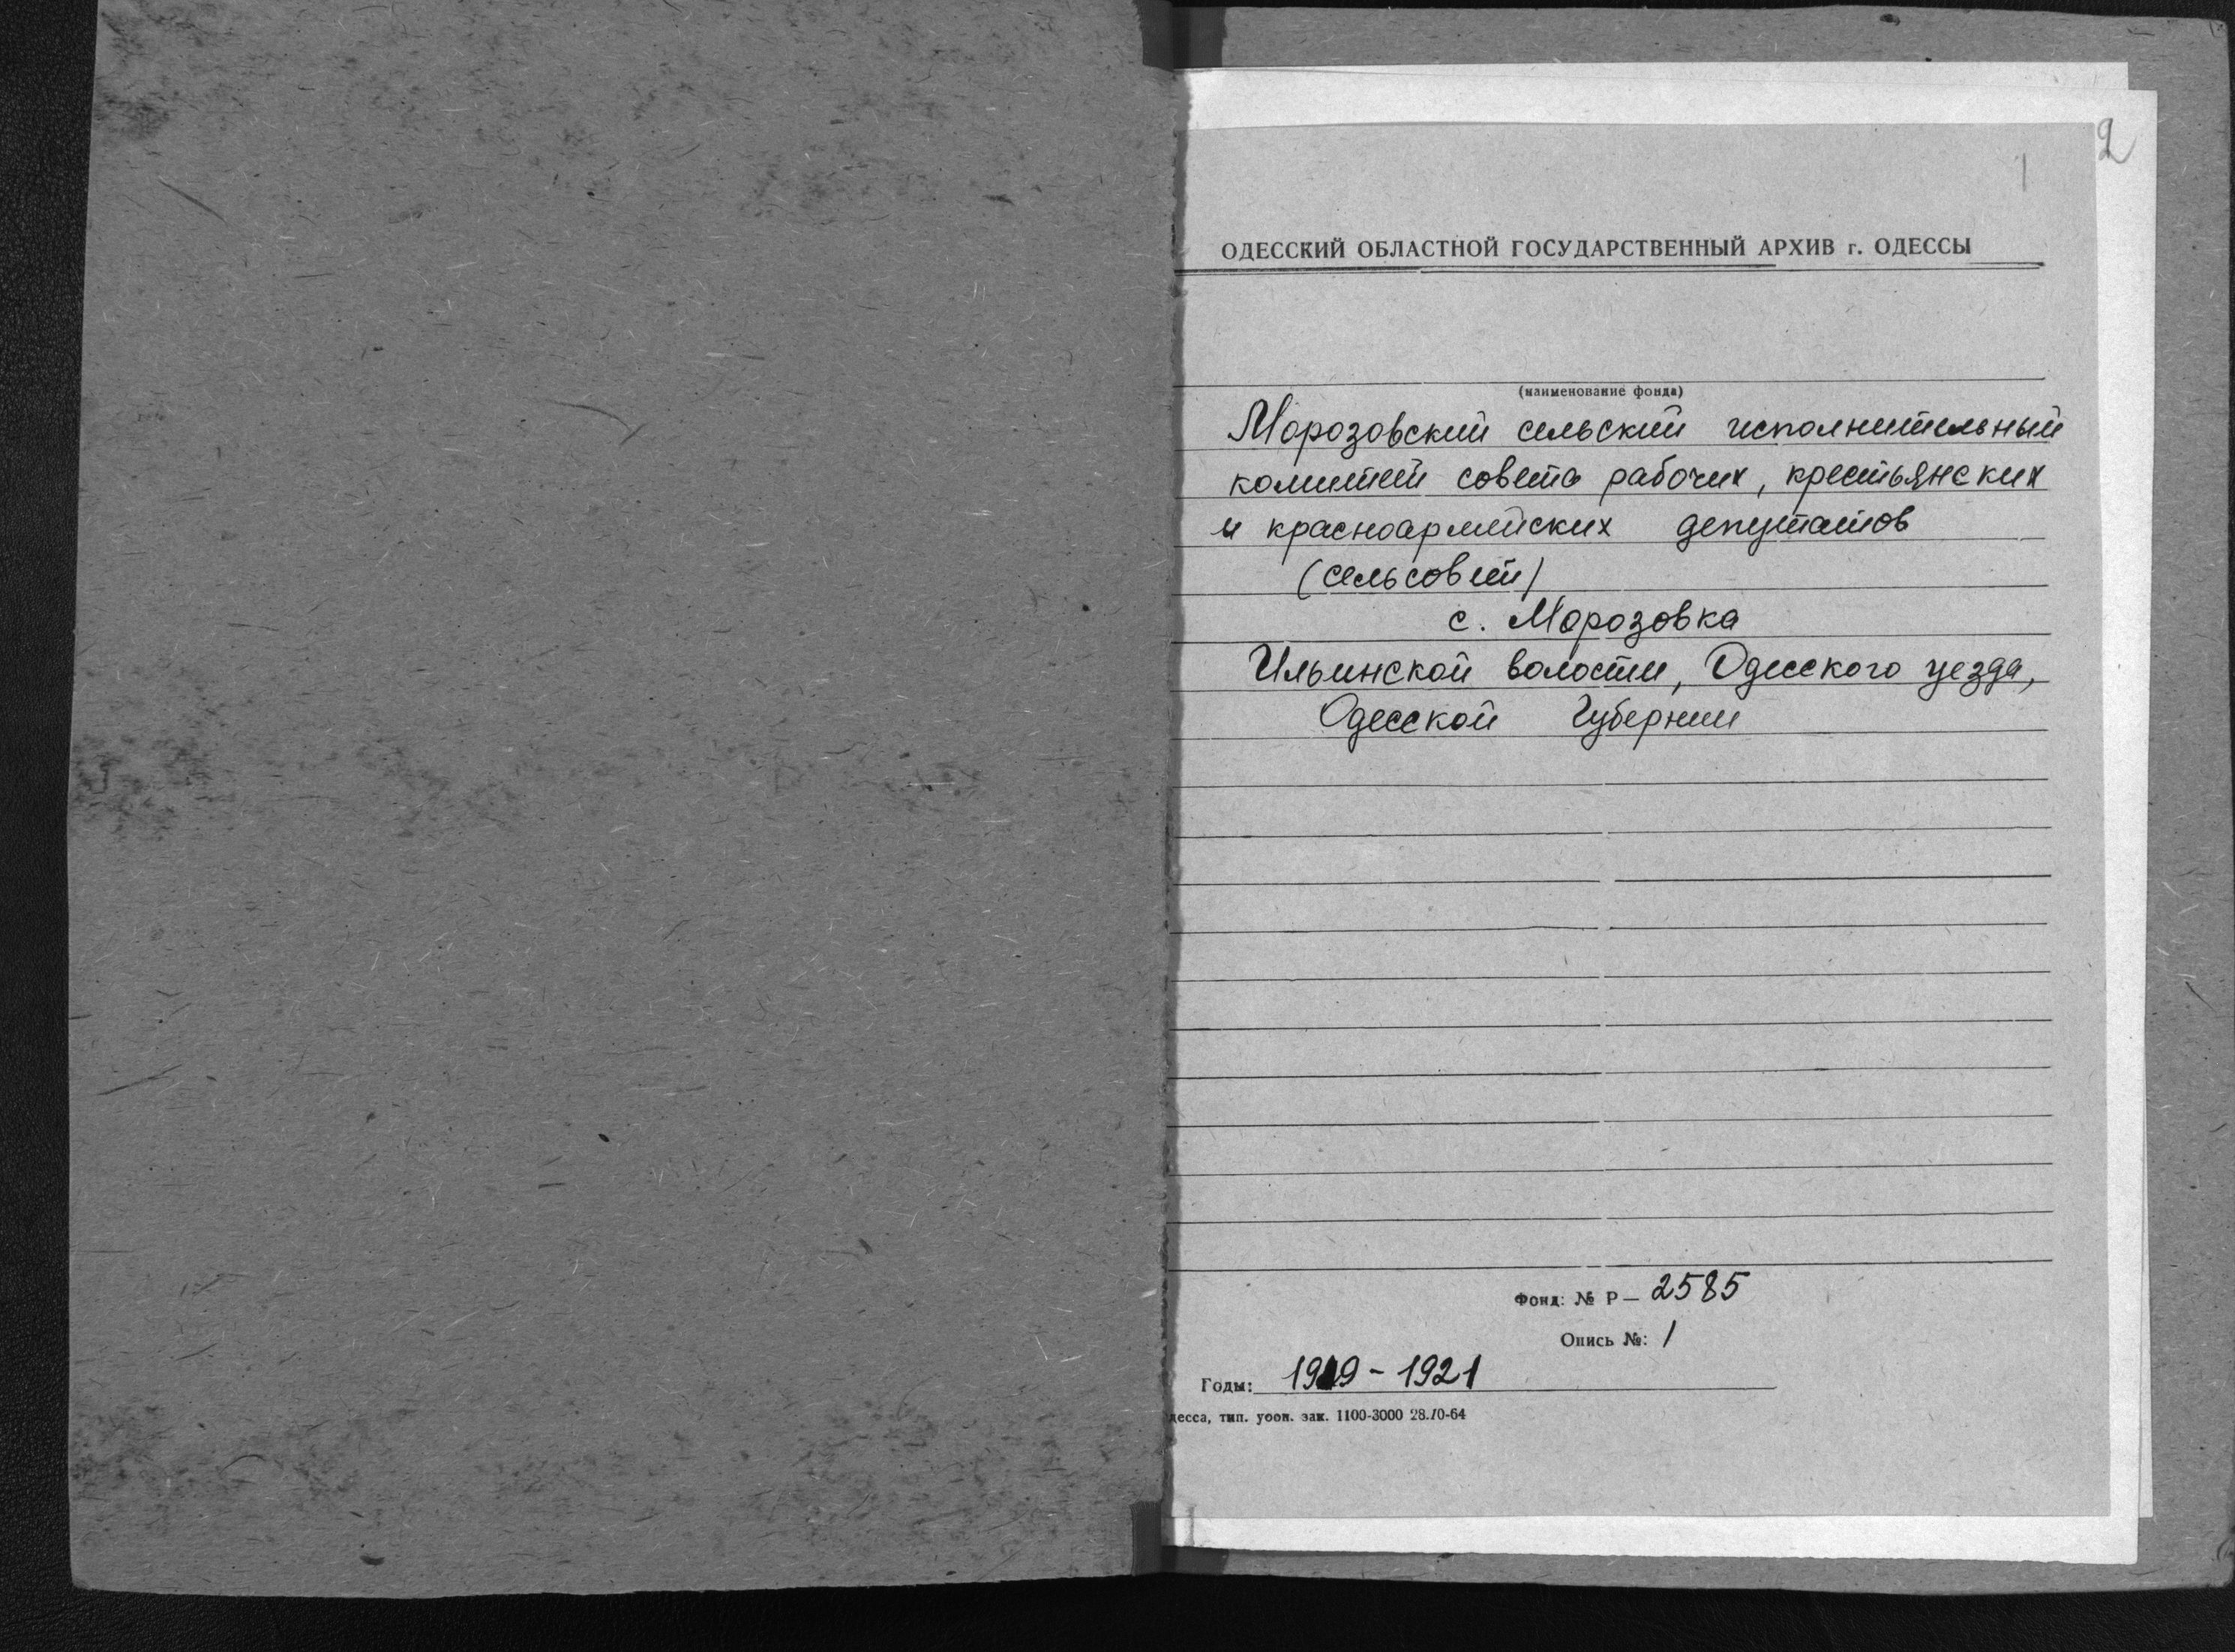 2
1
ОДЕССКИЙ ОБЛАСТНОЙ ГОСУДАРСТВЕННЫЙ АРХИВ г. ОДЕССЫ
(наименование фонда)
Морозовский сельский исполнительный
комитет совета рабочих, крестьянских
и красноармейских депутатов
(сельсовет)
с. Морозовка
Ильинской волости, Одесского уезда,
Одесской Губернии
Фонд: № Р— 2585
Опись №: 1
Годы: 1919 - 1921
десса, тип. уоои. зак. 1100-3000 28.10-64